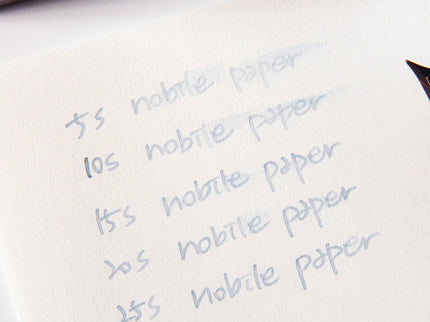 5s nobile paper
10s nobile paper
15s nobile paper
20s nobile paper
25s nobile paper